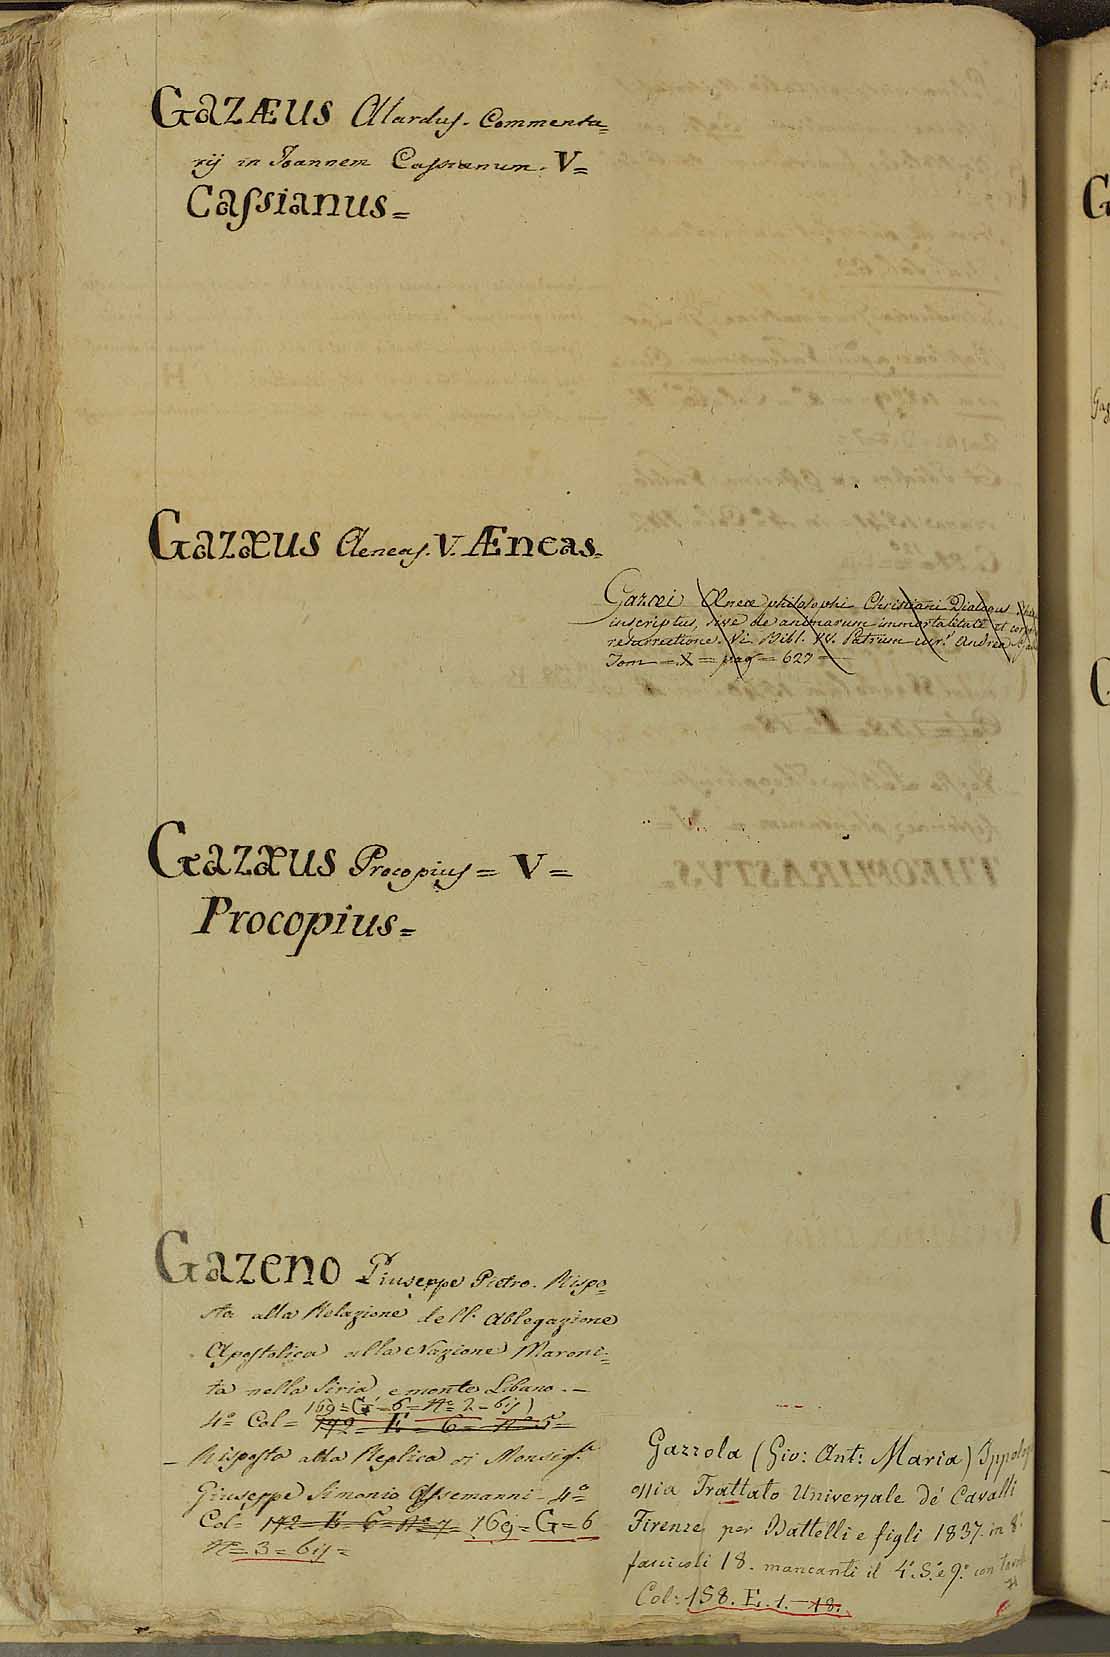 GAZÆUS Alardus. Commenta=
rij in Joannem Cassianum. V=
Cassianus=
Gazæus Aeneas. V. Æneas.
Gazæi Æneæ philosophi Christiani Dialogus
inscriptus, sive de animarum immortalitate et
resurrectione. Vi Bibl. VV. Patrum Andrea
Tom = X = pag = 627 =
Gazæus Procopius = V =
Procopius=
Gazeno Giuseppe Pietro. Rispo=
sta alla Relazione dell' Ablegazione
Apostolica alla Nazione Maroni=
ta nella Siria, e monte Libano. —
169 = G = 6 = Nº 2 = bis)
4º Col= 142 = E = 6 = Nº 5=
— Risposta alla Replica di Monsigr.
Giuseppe Simonio Assemanni - 4º
Col= 142 = E = 6 = Nº 7 = 169 = G = 6
Nº = 3 = bis =
Gazzola (Gio: Ant: Maria)
ossia Trattato Universale de' Cavalli
Firenze per Battelli e figli 1837. in 8º
fascicoli 18. mancanti il 4º. 8º. e 9º. con
Col: 158. E. 1. - 18.